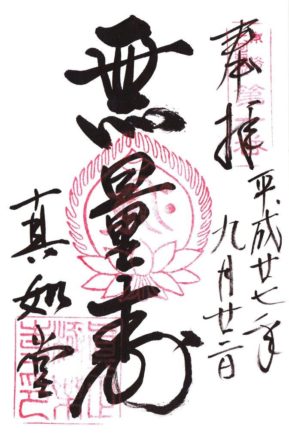 奉拝
平成廿七年
九月廿二日
無量寿
真如堂